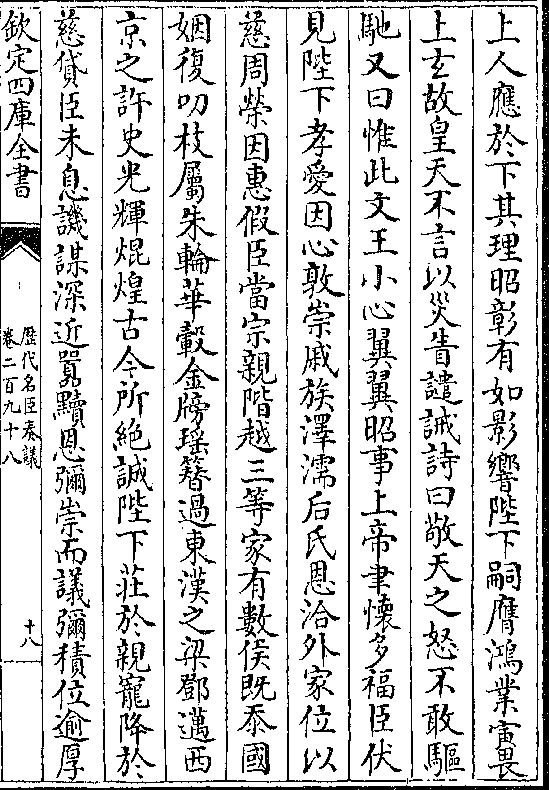 上人應於下其理昭彰有如影響陛下嗣膺鴻業寅畏
上玄故皇天不言以災眚譴誡詩曰敬天之怒不敢驅
馳又曰惟此文王小心翼翼昭事上帝聿懷多福臣伏
見陛下孝愛因心敦崇戚族澤濡后氏恩洽外家位以
慈周榮因惠假臣當宗親階越三等家有數侯既忝國
姻復叨枝屬朱輪華轂金牓瑶簪過東漢之梁鄧邁西
京之許史光輝焜煌古今所絶誠陛下莊於親寵降於
慈貸臣未息譏謀深近嚚黷恩彌崇而議彌積位逾厚
欽定四庫全書
歴代名臣奏議
卷二百九十八
十八